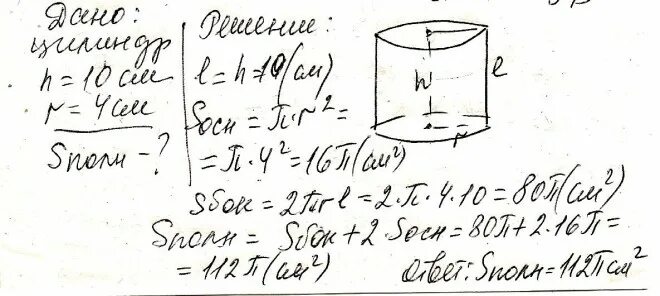 Дано:
цилиндр
h = 10 см
r = 4 см
Sполн - ?
Решение:
l = h = 10 (см)
Sосн = π·r² =
= π·4² = 16π (см²)
Sбок = 2πrl = 2·π·4·10 = 80π (см²)
Sполн = Sбок + 2·Sосн = 80π + 2·16π =
= 112π (см²)
Ответ: Sполн = 112π см²
h
l
r